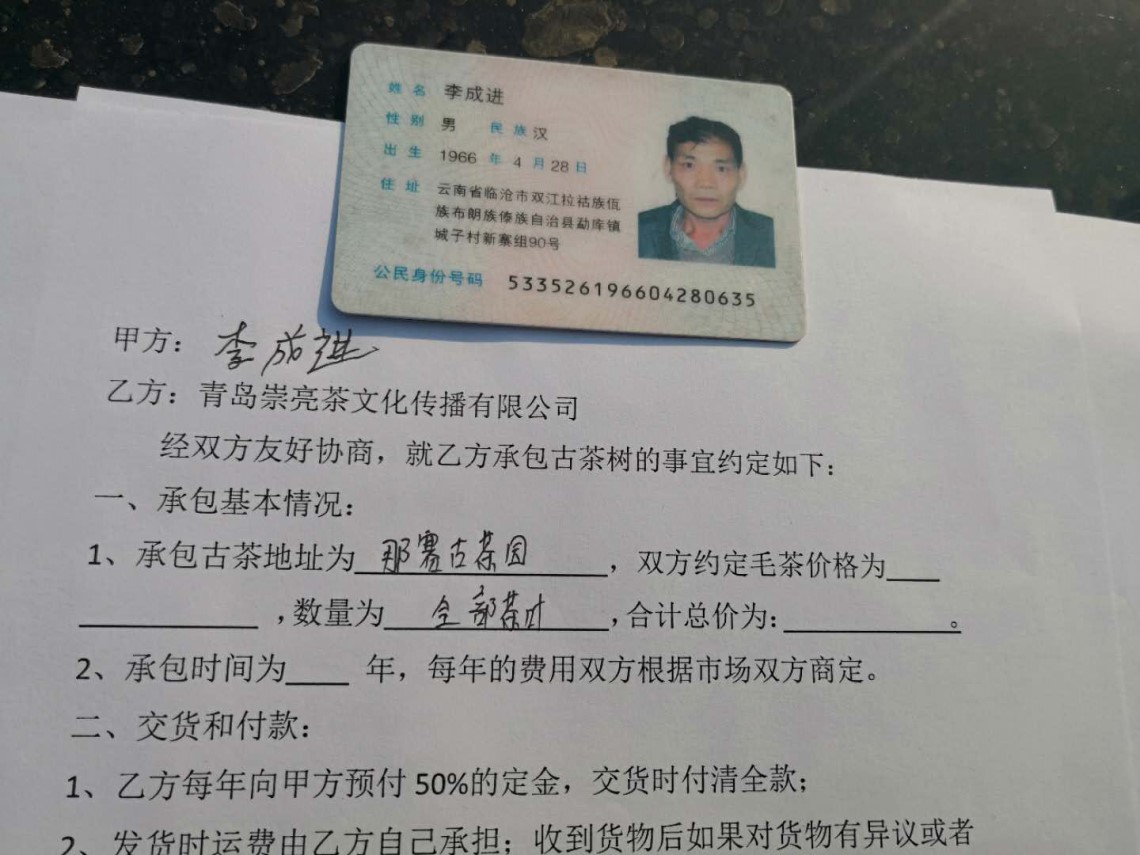 姓名 李成进
性别 男 民族 汉
出生 1966年4月28日
住址 云南省临沧市双江拉祜族佤
族布朗族傣族自治县勐库镇
城子村新寨组90号
公民身份号码 533526196604280635
甲方：李成进
乙方：青岛崇亮茶文化传播有限公司
经双方友好协商，就乙方承包古茶树的事宜约定如下：
一、承包基本情况：
1、承包古茶地址为 那赛古茶园 ，双方约定毛茶价格为
，数量为 全部茶叶 ，合计总价为：。
2、承包时间为 年，每年的费用双方根据市场双方商定。
二、交货和付款：
1、乙方每年向甲方预付50%的定金，交货时付清全款；
2、发货时运费由乙方自己承担；收到货物后如果对货物有异议或者